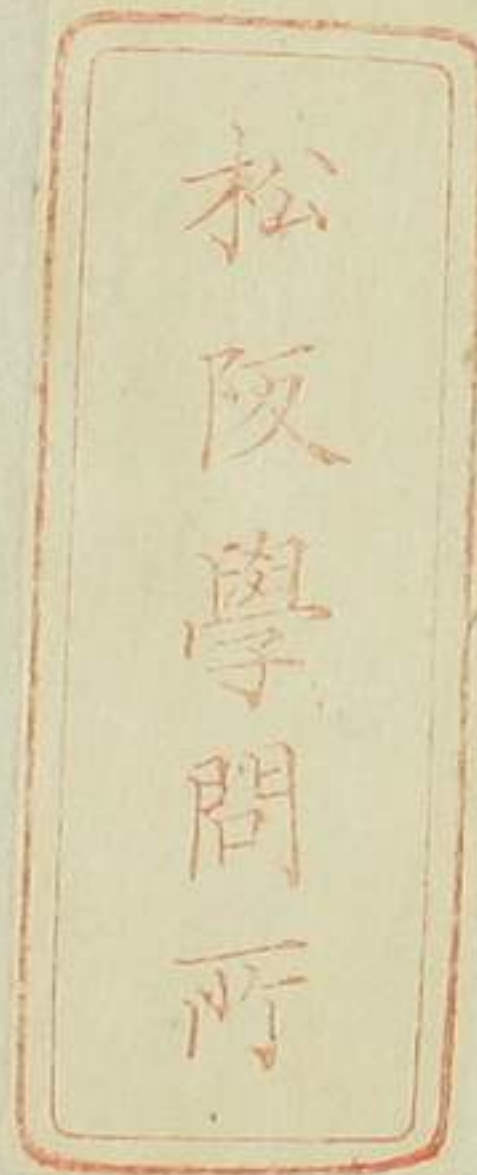 松阪學問所